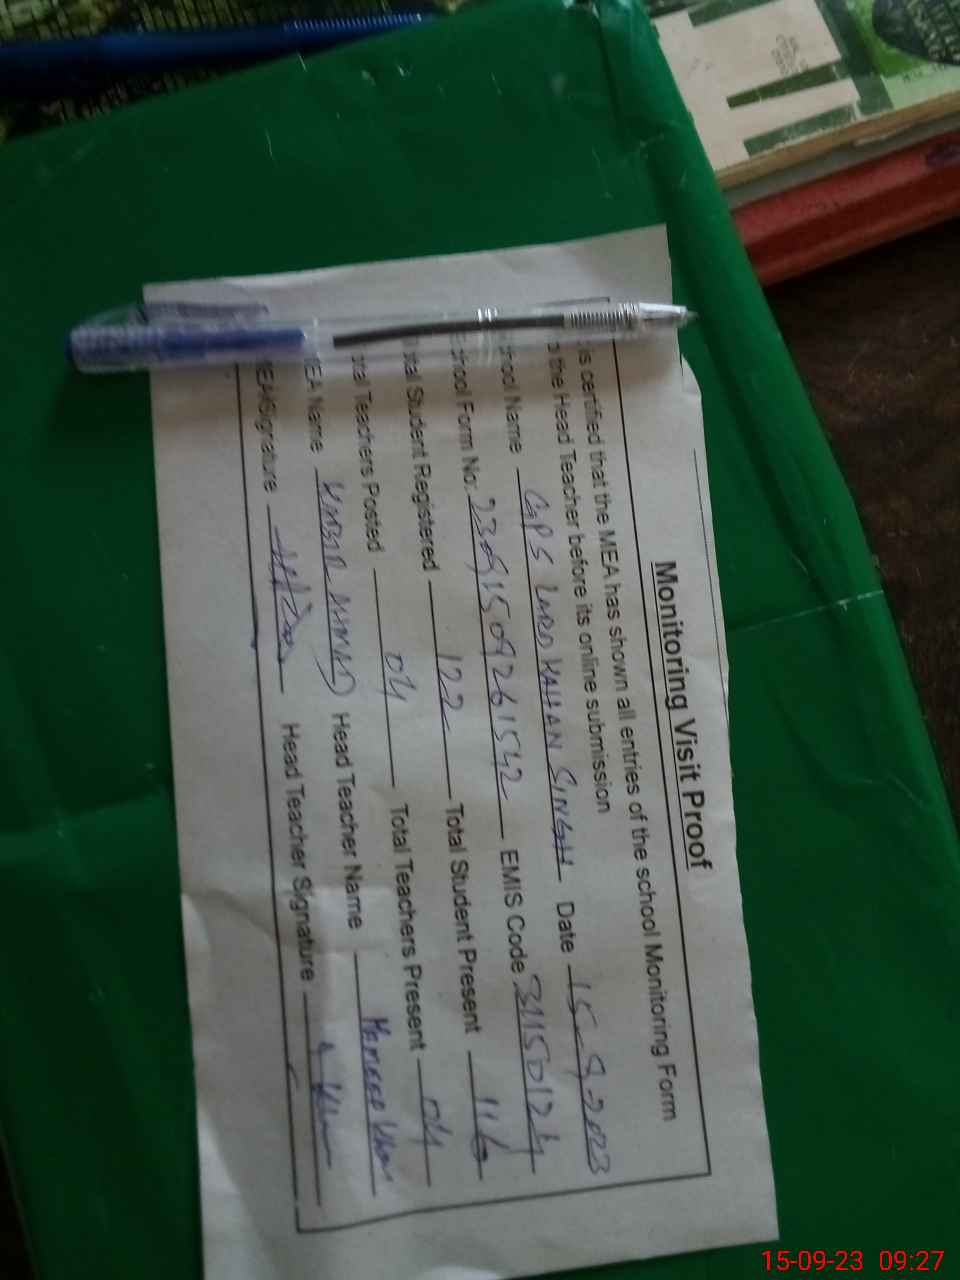 Monitoring Visit Proof
is certified that the MEA has shown all entries of the school Monitoring Form
the Head Teacher before its online submission
chool Name GPS LARD KAHAN SINGH Date 15-9-2023
chool Form No: EMIS Code
tal Student Registered 122 Total Student Present 116
otal Teachers Posted 04 Total Teachers Present 04
MEA Name Head Teacher Name Hameed Khan
MEA Signature Head Teacher Signature
15-09-23 09:27